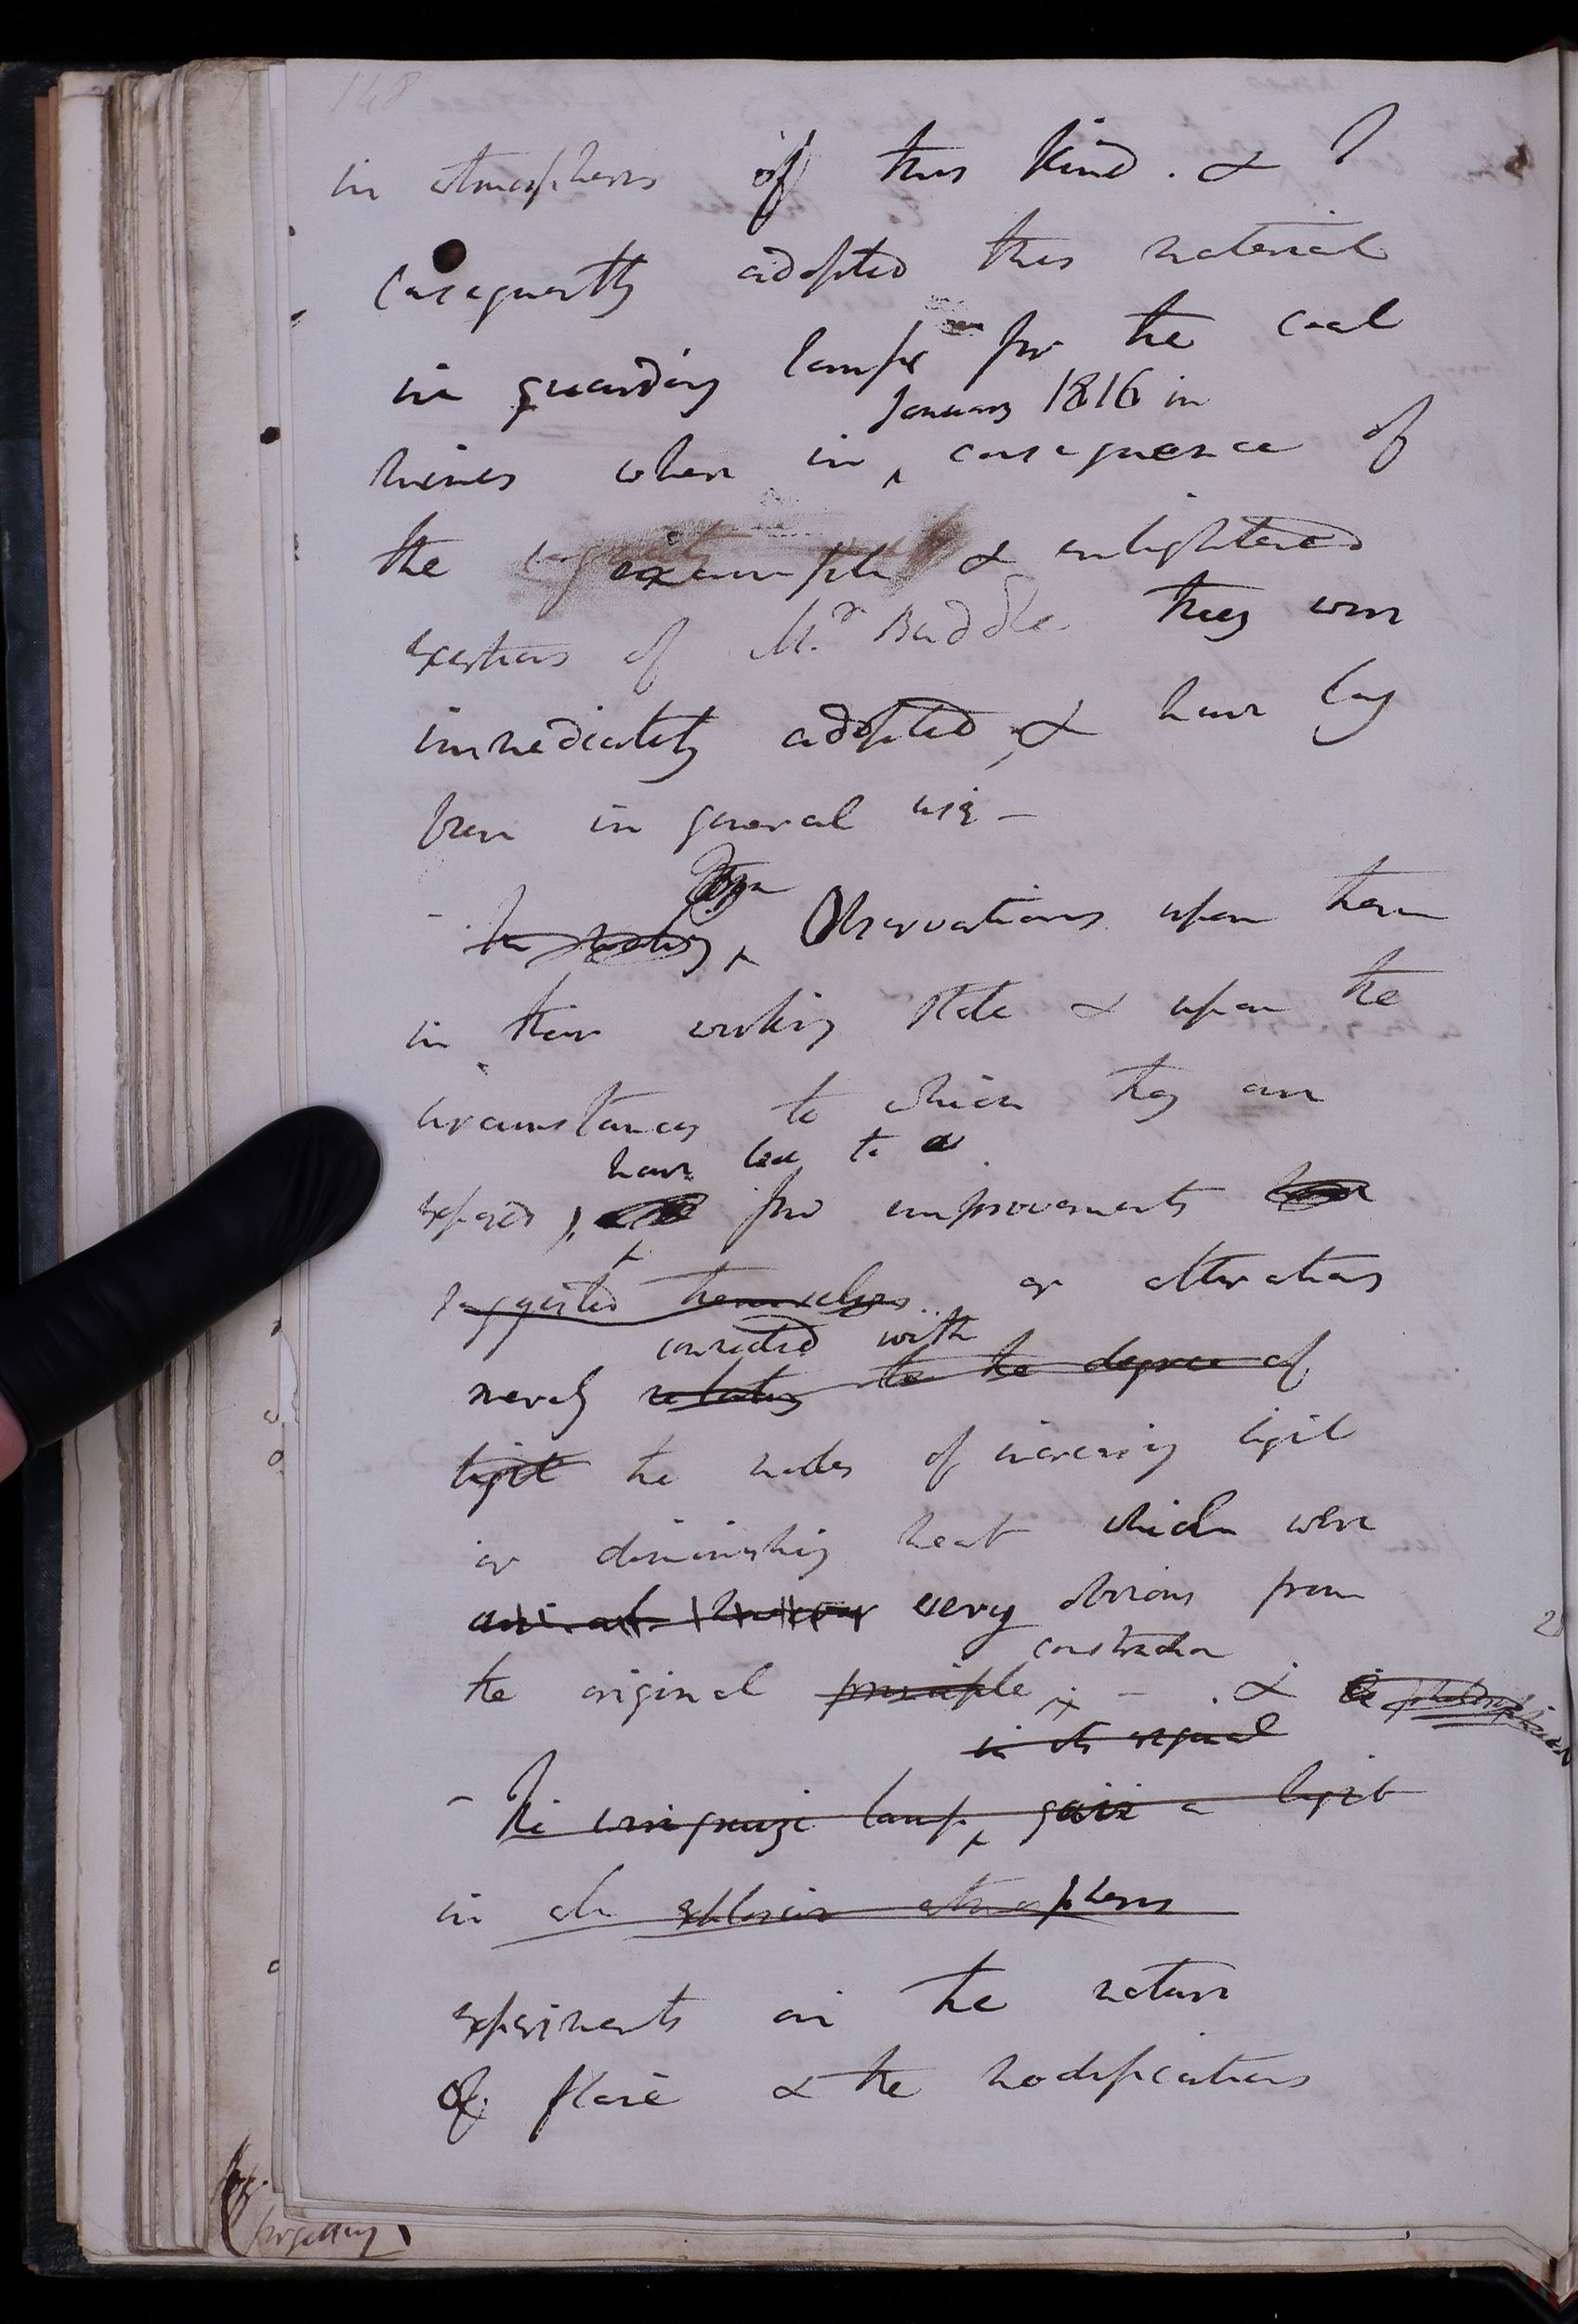 148
in atmospheres of this kind. & I
consequently adopted this material
in guarding lamps for the coal
January 1816 in
mines when in ^ consequence of
the example & enlightened
exertions of Mr. Buddle they were
immediately adopted, & have long
been in general use –
– In working ^ Observations upon them
in their working state & upon the
circumstances to which they are
have led to a
exposed, few improvements
suggested themselves or alterations
connected with
merely relating to the degree of
light the modes of increasing light
or diminishing heat which were
very obvious from
construction
the original principle . – . &
in its original
– The wire gauze lamp ^ gave a light
in all explosive atmospheres
experiments on the nature
of flame & the modifications